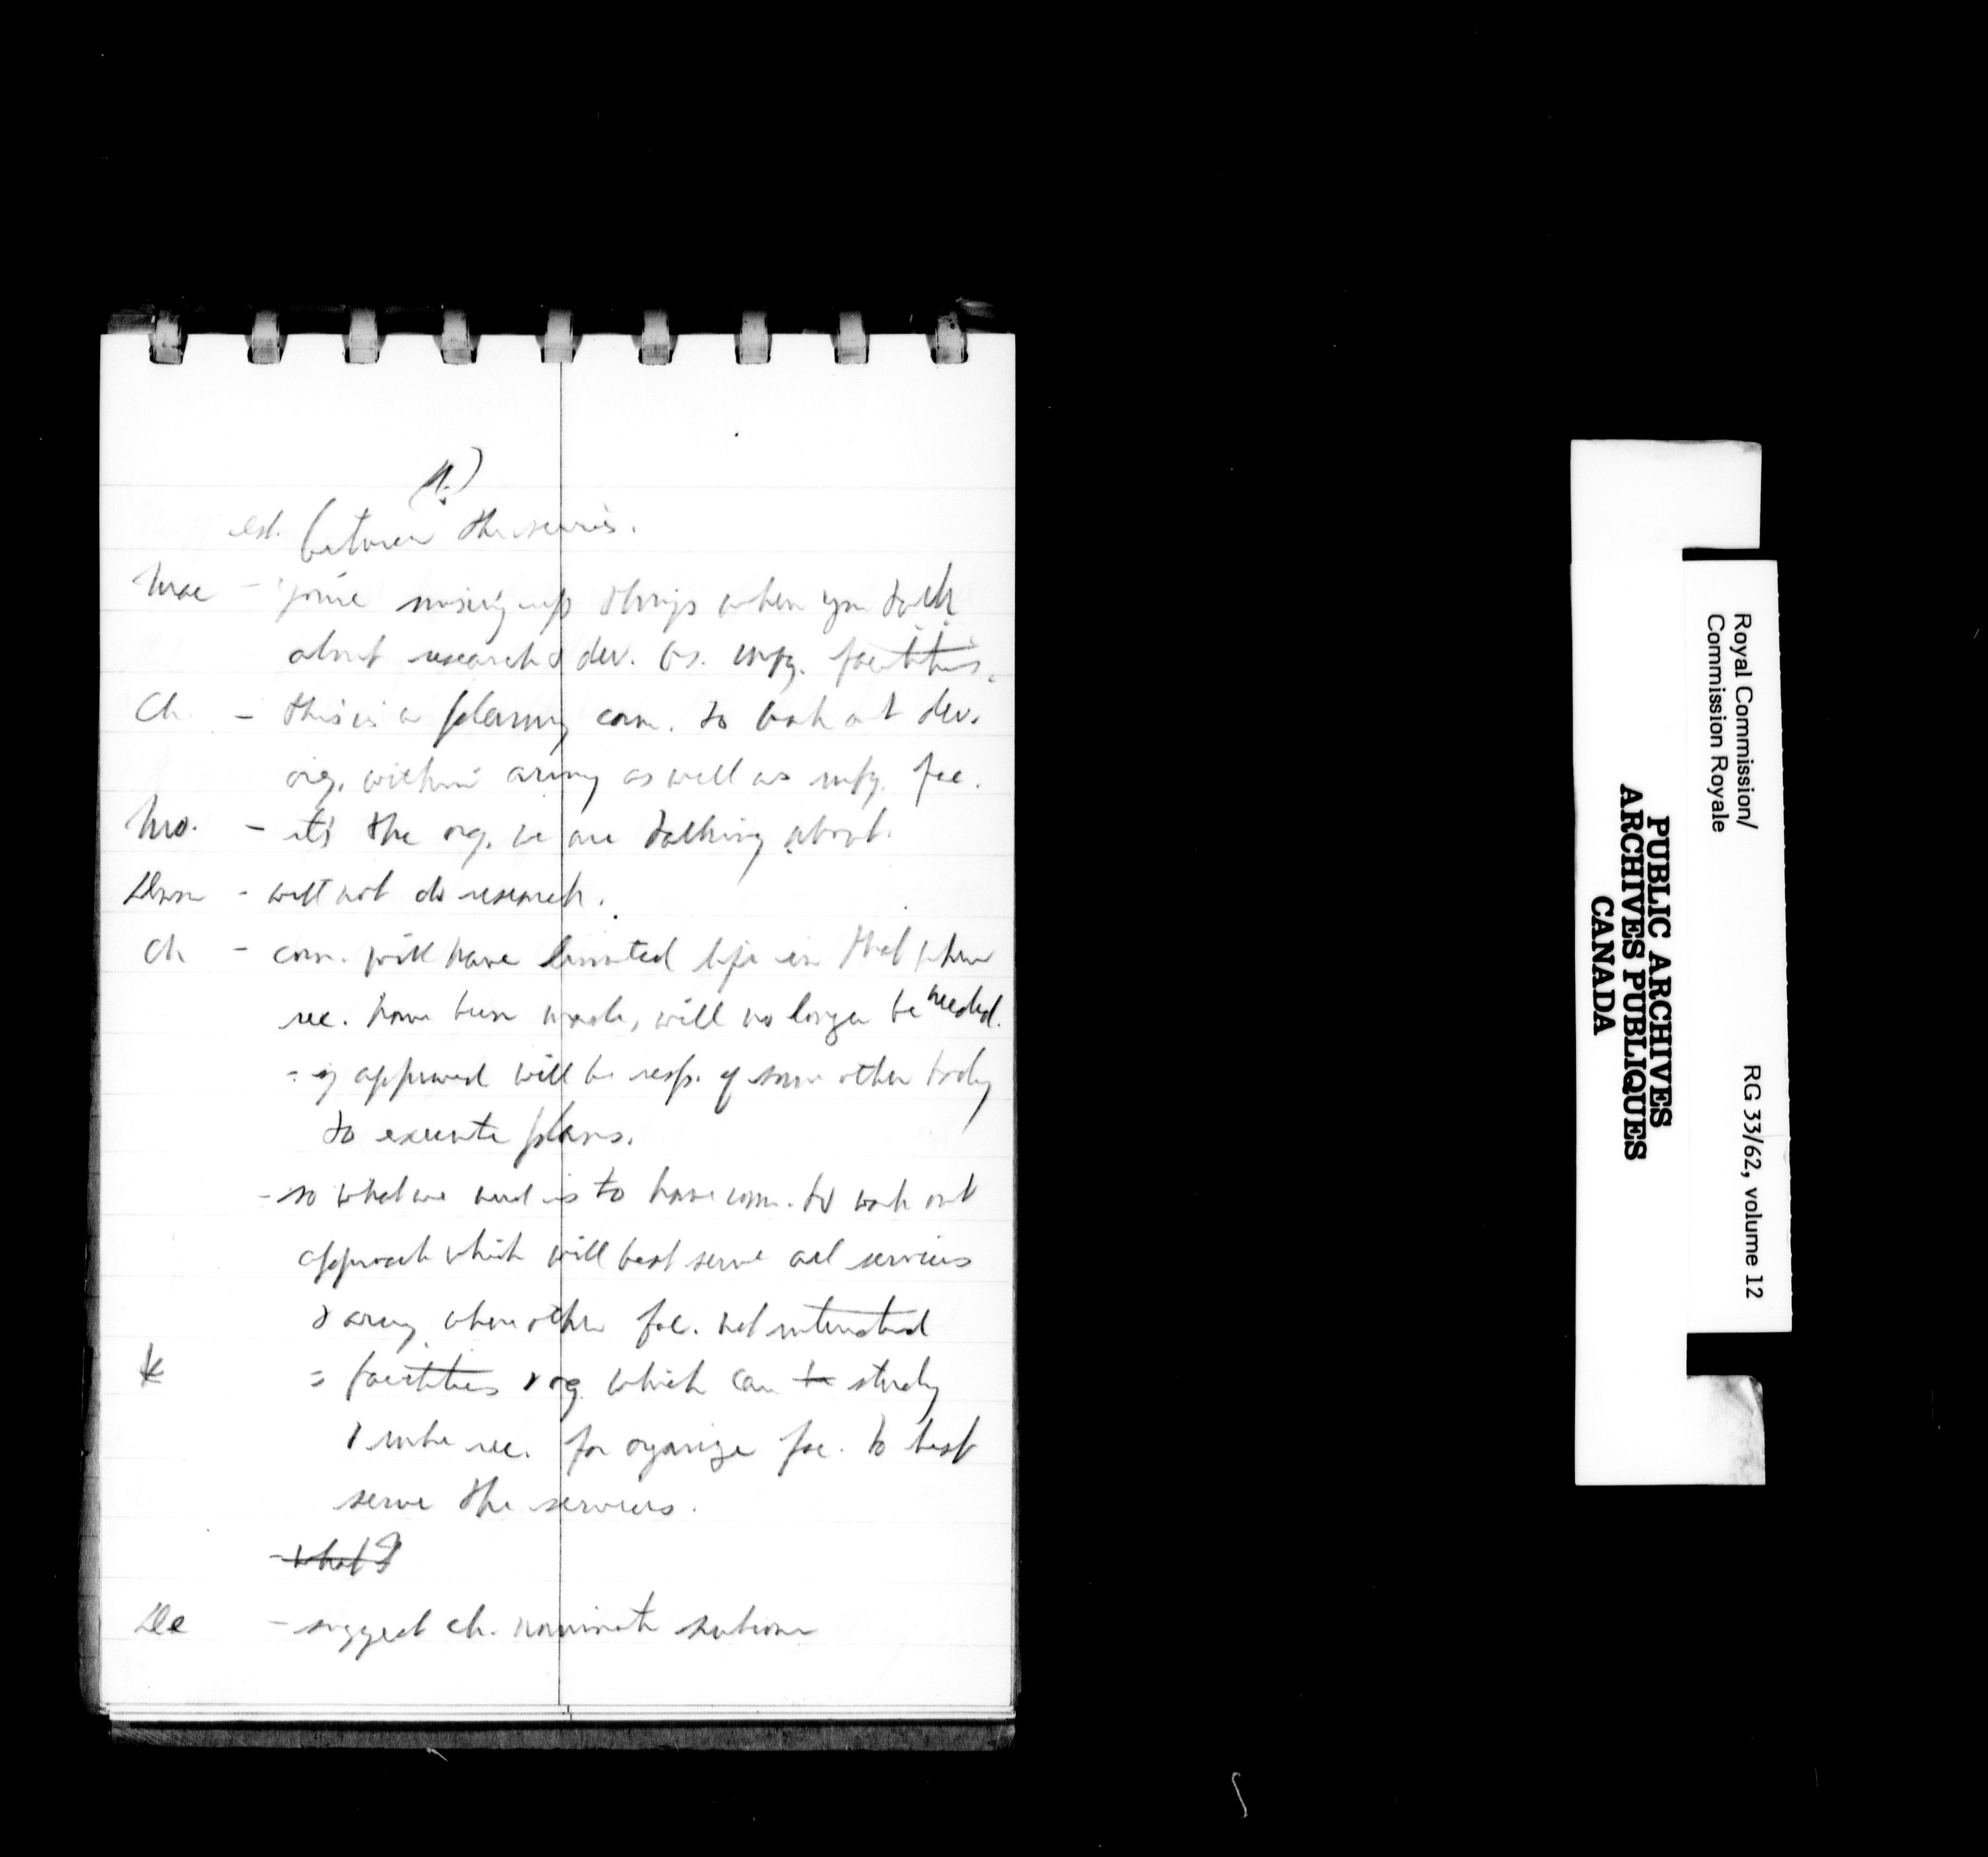 est. between the services.
Mac - you're mixing up things when you talk
about research & dev. vs. mfg. facilities.
Ch. - this is a planning com. to work out dev.
org. within army as well as mfg. fac.
Mo. - it's the org. we are talking about.
- will not do research.
Ch - com. will have limited life in that when
rec. have been made, will no longer be needed.
- if approved will be resp. of some other body
to execute plans.
- so what we need is to have com. to work out
approach which will best serve all services
& army where other fac. not interested
= facilities & org. which can be study
& make rec. for organize fac. to best
serve the services.
- what
De - suggest ch. nominate
Royal Commission/
Commission Royale
RG 33/62, volume 12
PUBLIC ARCHIVES
ARCHIVES PUBLIQUES
CANADA